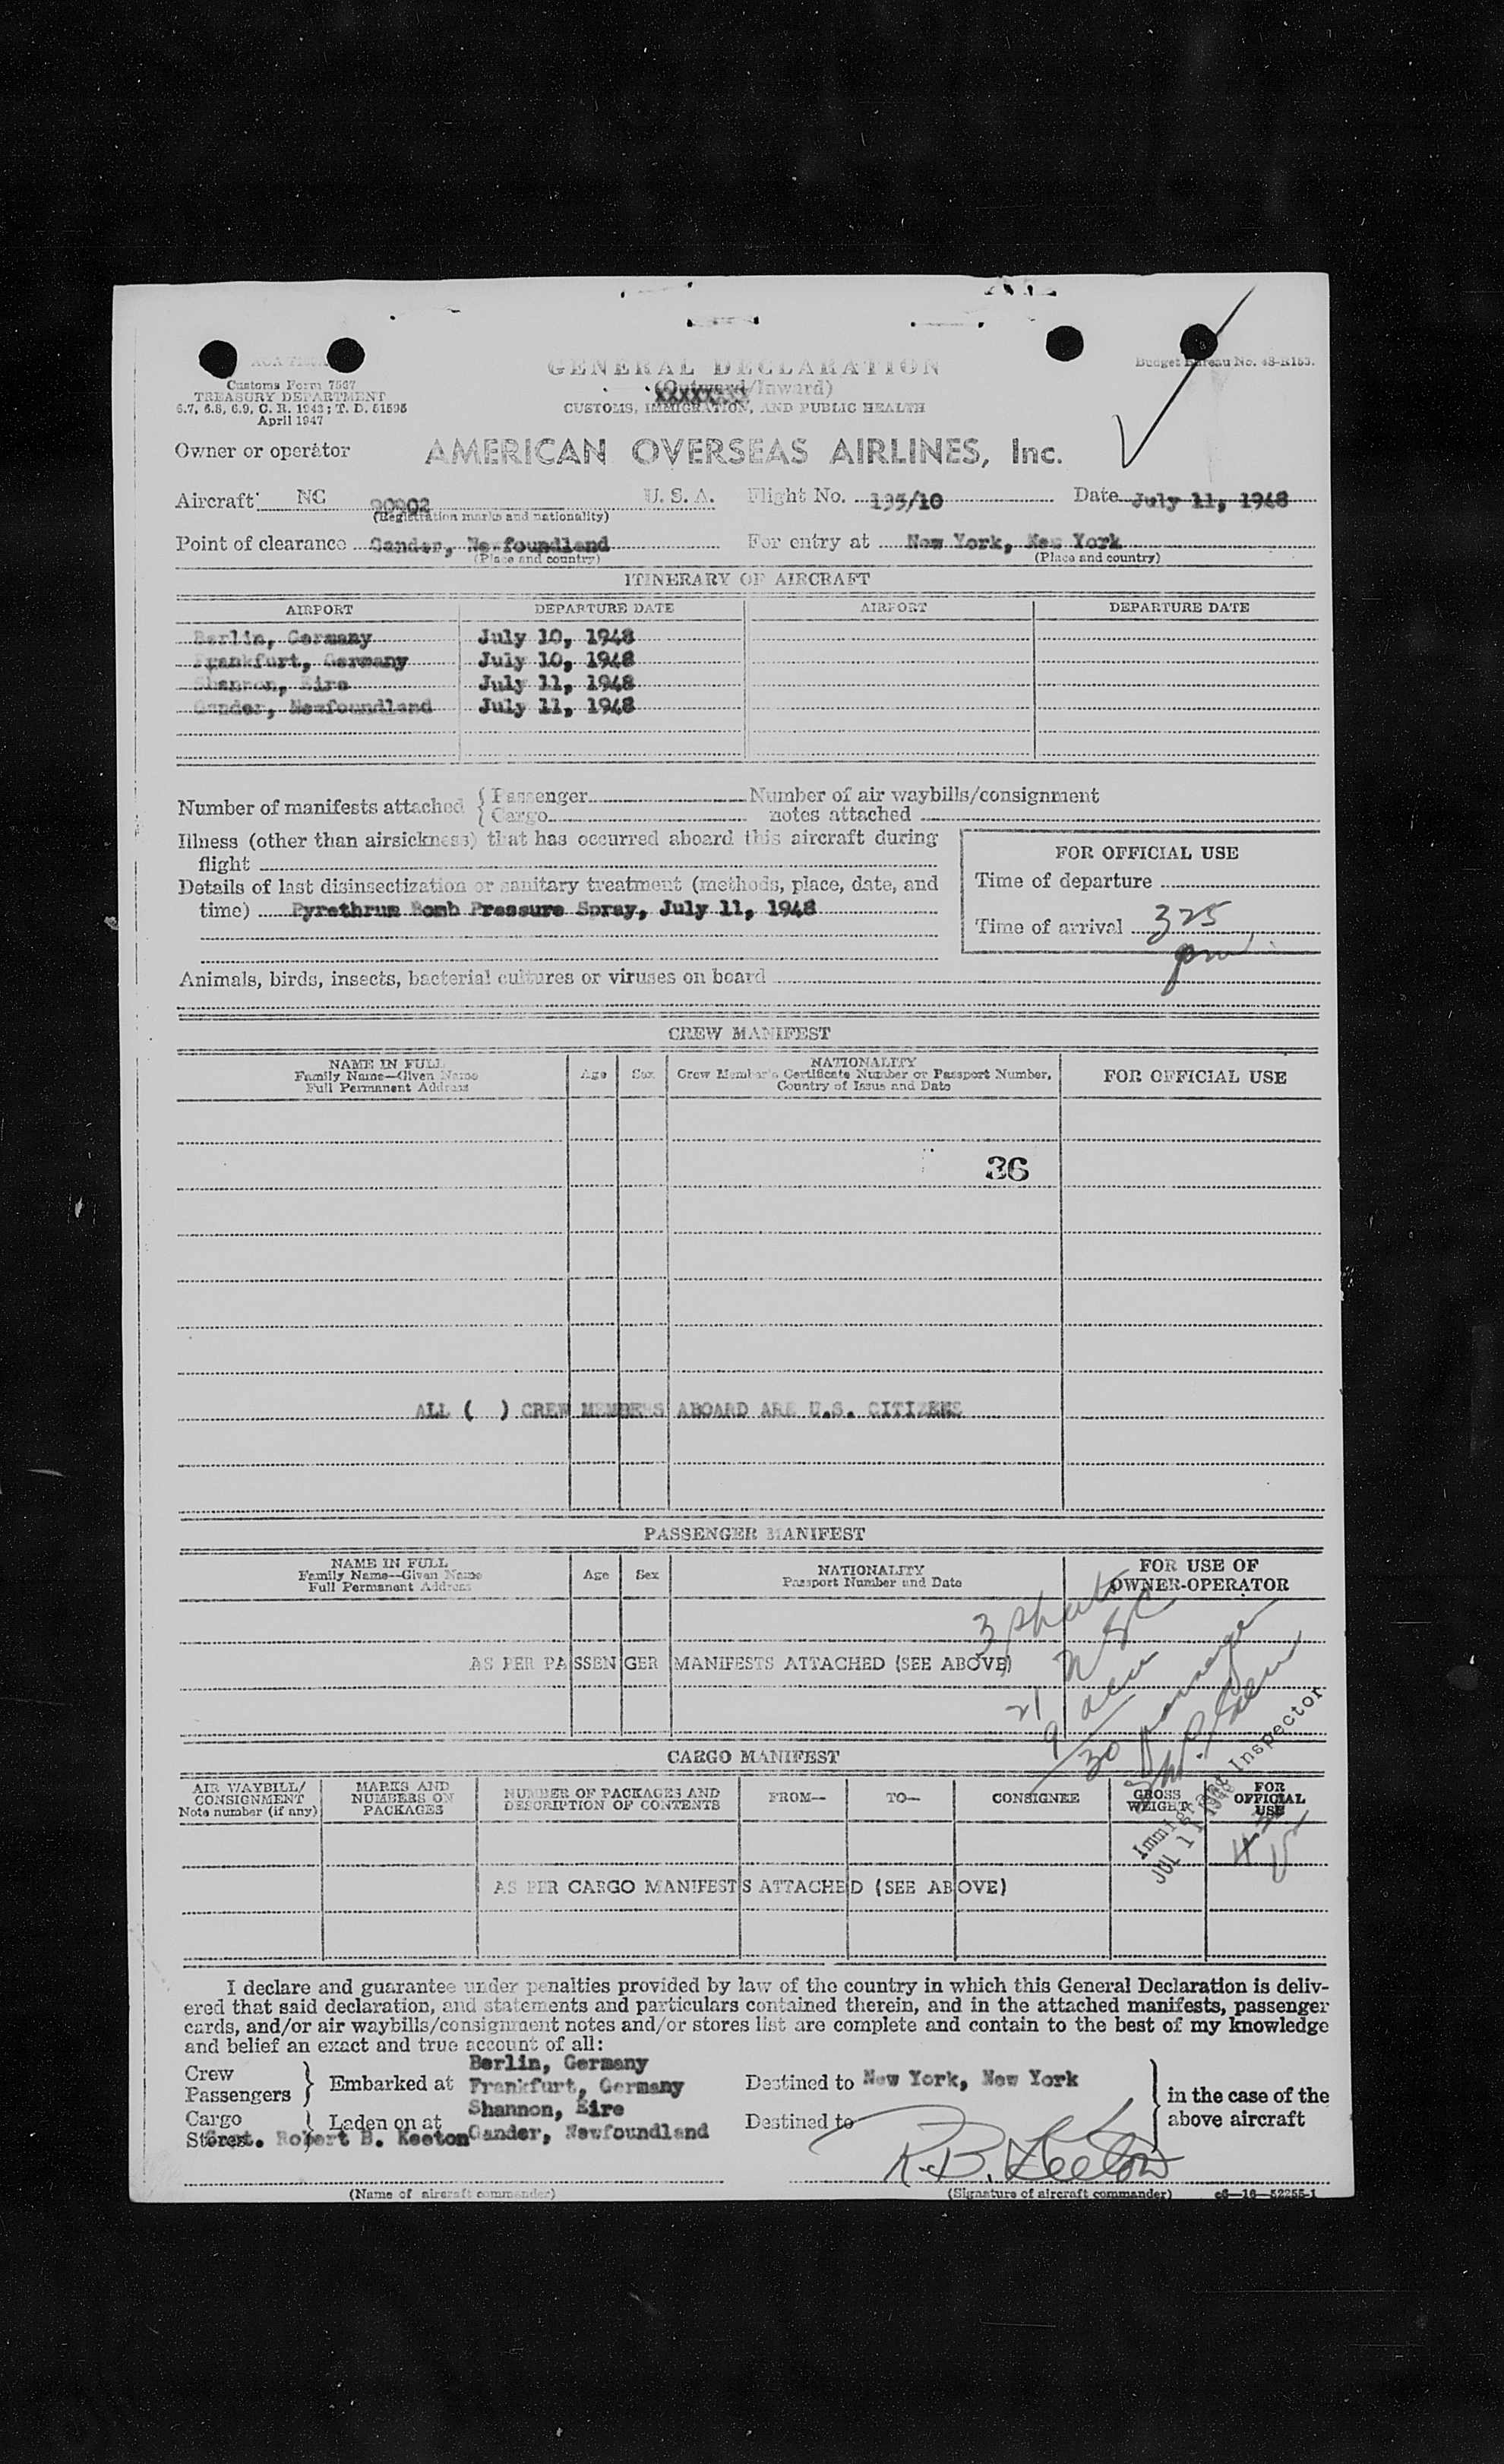 GENERAL DECLARATION
(Outward/Inward)
CUSTOMS, IMMIGRATION, AND PUBLIC HEALTH
Budget Bureau No. 48-R153.
Customs Form 7507
TREASURY DEPARTMENT
6.7, 6.8, 6.9, C. R. 1943; T. D. 51595
April 1947
Owner or operator AMERICAN OVERSEAS AIRLINES, Inc.
Aircraft NC 90902 U. S. A. Flight No. 195/10 Date July 11, 1948
(Registration marks and nationality)
Point of clearance Gander, Newfoundland For entry at New York, New York
(Place and country) (Place and country)
ITINERARY OF AIRCRAFT
AIRPORT DEPARTURE DATE AIRPORT DEPARTURE DATE
Berlin, Germany July 10, 1948
Frankfurt, Germany July 10, 1948
Shannon, Eire July 11, 1948
Gander, Newfoundland July 11, 1948
Number of manifests attached { Passenger Number of air waybills/consignment
{ Cargo notes attached
Illness (other than airsickness) that has occurred aboard this aircraft during
flight
FOR OFFICIAL USE
Details of last disinsectization or sanitary treatment (methods, place, date, and
time) Pyrethrum Bomb Pressure Spray, July 11, 1948
Time of departure
Time of arrival 325
pm
Animals, birds, insects, bacterial cultures or viruses on board
CREW MANIFEST
NAME IN FULL
Family Name—Given Name
Full Permanent Address
Age Sex
NATIONALITY
Crew Member's Certificate Number or Passport Number,
Country of Issue and Date
FOR OFFICIAL USE
36
ALL ( ) CREW MEMBERS ABOARD ARE U.S. CITIZENS
PASSENGER MANIFEST
NAME IN FULL
Family Name—Given Name
Full Permanent Address
Age Sex
NATIONALITY
Passport Number and Date
FOR USE OF
OWNER-OPERATOR
3 sheets
AS PER PASSENGER MANIFESTS ATTACHED (SEE ABOVE)
21
9
30
Immigrant Inspector
JUL 11 1948
CARGO MANIFEST
AIR WAYBILL/
CONSIGNMENT
Note number (if any)
MARKS AND
NUMBERS ON
PACKAGES
NUMBER OF PACKAGES AND
DESCRIPTION OF CONTENTS
FROM— TO— CONSIGNEE
GROSS
WEIGHT
FOR
OFFICIAL
USE
AS PER CARGO MANIFESTS ATTACHED (SEE ABOVE)
I declare and guarantee under penalties provided by law of the country in which this General Declaration is deliv-
ered that said declaration, and statements and particulars contained therein, and in the attached manifests, passenger
cards, and/or air waybills/consignment notes and/or stores list are complete and contain to the best of my knowledge
and belief an exact and true account of all:
Berlin, Germany
Crew
Passengers } Embarked at Frankfurt, Germany Destined to New York, New York } in the case of the
Shannon, Eire
Cargo
Stores } Laden on at Gander, Newfoundland Destined to above aircraft
Capt. Robert B. Keeton
R.B. Keeton
(Name of aircraft commander) (Signature of aircraft commander) c6—16—52255-1